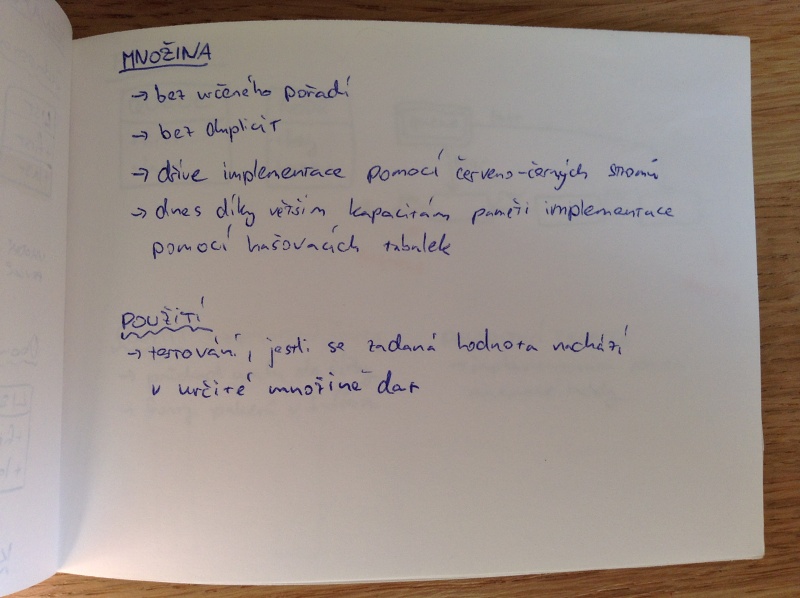 MNOŽINA
→ bez určeného pořadí
→ bez duplicit
→ dříve implementace pomocí červeno-černých stromů
→ dnes díky větším kapacitám paměti implementace
pomocí hašovacích tabulek
POUŽITÍ
→ testování, jestli se zadaná hodnota nachází
v určité množině dat